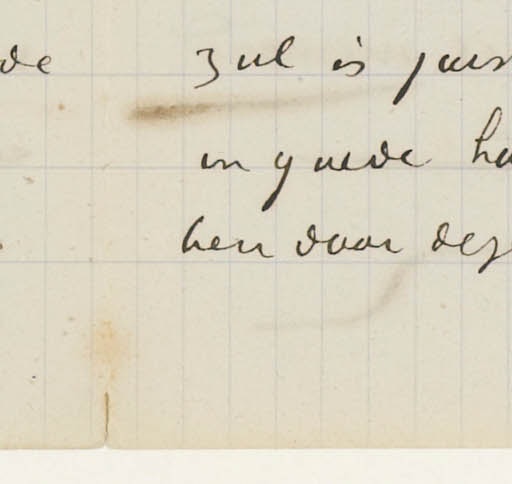 de zul is juis
in goede ha
hen door deze